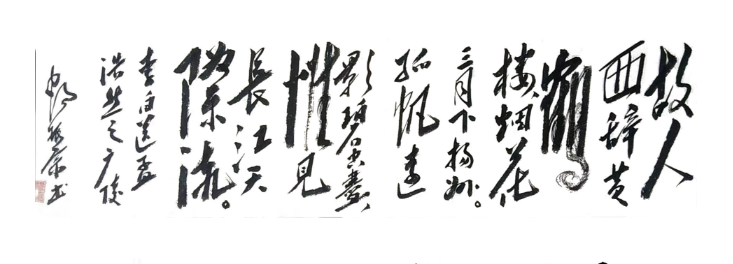 故人
西辞黄
鹤
楼,烟花
三月下扬州。
孤帆遠
影碧空盡,
惟見
長江天
際流。
李白送孟
浩然之广陵
书